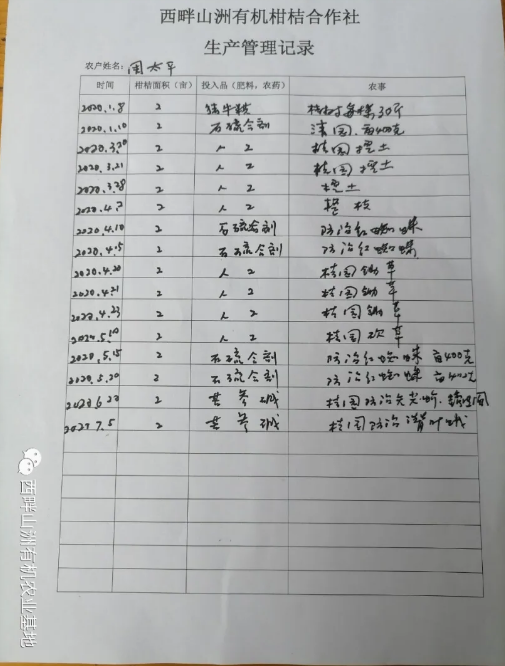 西畔山洲有机柑桔合作社
生产管理记录
农户姓名：周太平
时间 柑桔面积（亩） 投入品（肥料，农药） 农事
2020.1.8 2 桔树每棵30斤
2020.1.10 2 石硫合剂 清园 亩400克
2020.3.20 2 人2 桔园挖土
2020.3.21 2 人2 桔园挖土
2020.3.28 2 人2 挖土
2020.4.2 2 人2 整枝
2020.4.10 2 石硫合剂 防治红蜘蛛
2020.4.5 2 石硫合剂 防治红蜘蛛
2020.4.20 2 人2 桔园锄草
2020.4.21 2 人2 桔园锄草
2020.4.23 2 人2 桔园锄草
2020.5.10 2 人2 桔园砍草
2020.5.15 2 石硫合剂 防治红蜘蛛 亩400克
2020.5.20 2 石硫合剂 防治红蜘蛛 亩400克
2 苦参碱 桔园防治
2 苦参碱 桔园防治潜叶蛾
西畔山洲有机农业基地